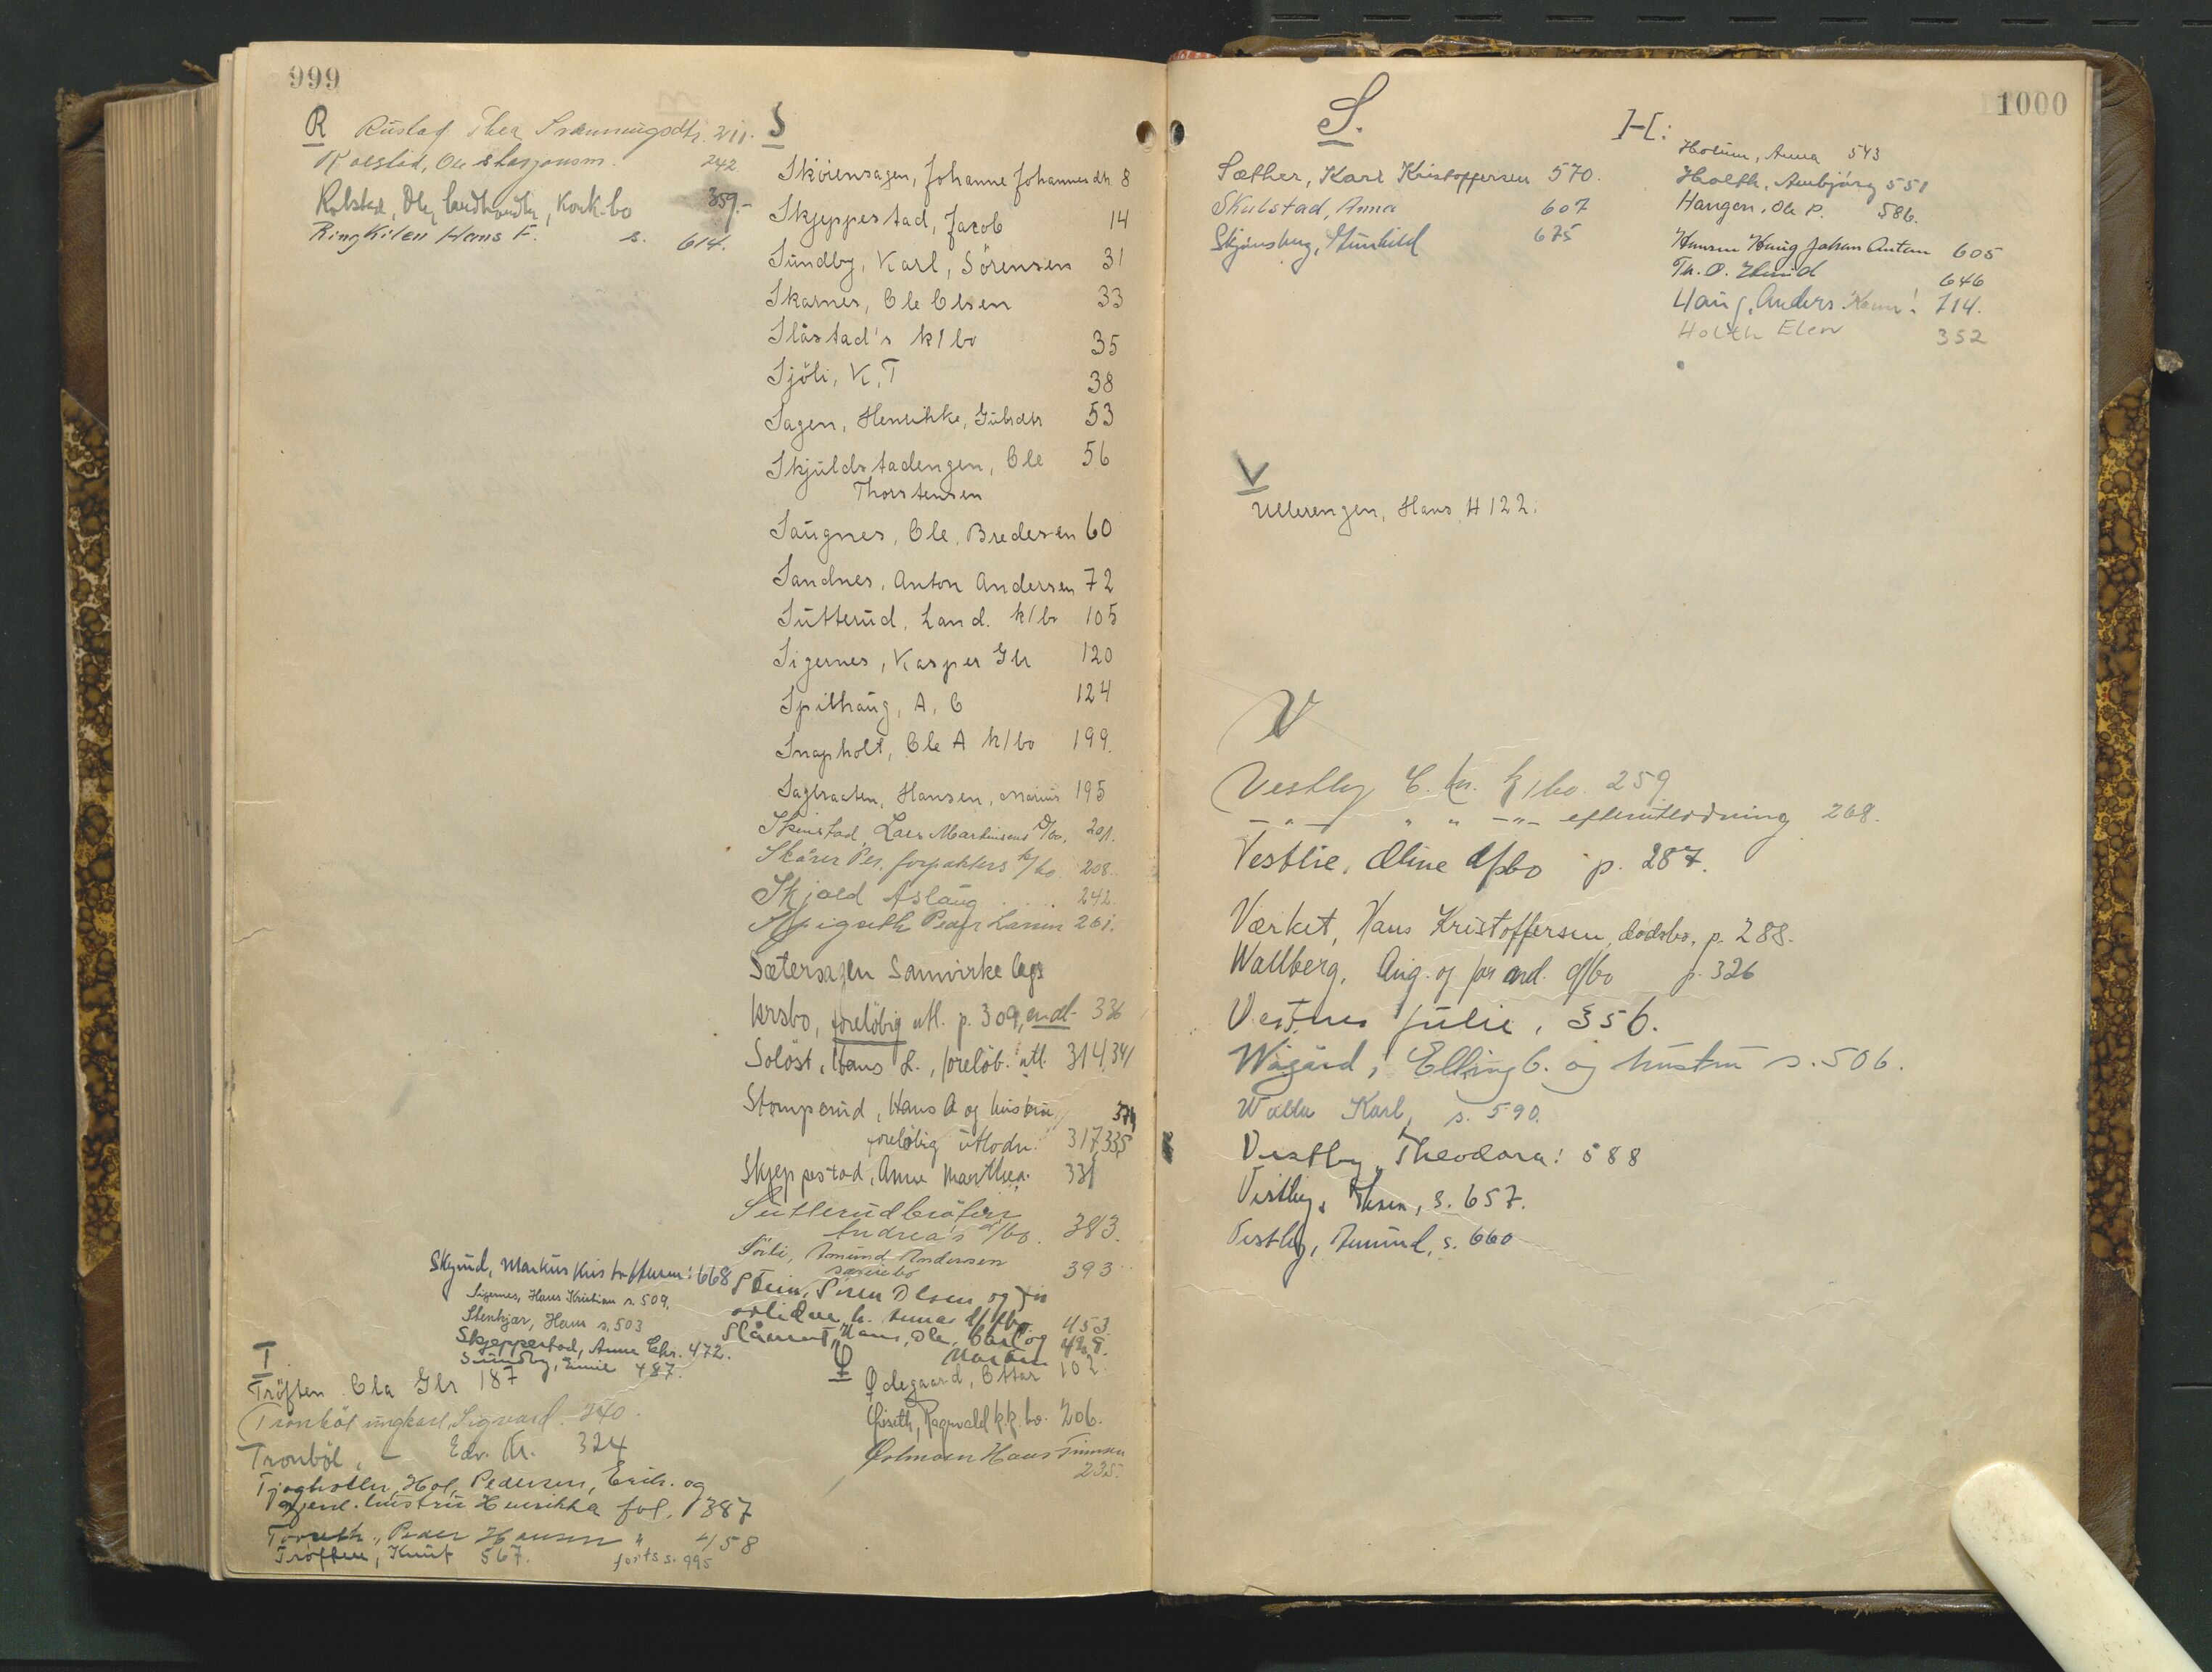 999
R Rustad Thea Svenningsdtr. 211.
Rolstad, Ole stasjonsm. 242
Rolstad, Ole, landhandler, konk.bo 359.-
Ringkilen Hans F. s. 614.
S
Skøiensagen, Johanne Johannesdtr 8
Skjeppestad, Jacob 14
Sundby, Karl, Sörensen 31
Skarnes, Ole Olsen 33
Slåstad's k/bo 35
Sjöli, K, T 38
Sagen, Henrikke, Gulsdtr 53
Skjuldstadengen, Ole 56
Thorstensen
Saugnes, Ole, Bredesen 60
Sandnes, Anton Andersen 72
Sutterud, Land. k/bo 105
Sigernes, Kasper Glr 120
Spilhaug, A, O 124
Snapholt, Ole A k/bo 199.
Sagbraaten, Hansen, Marius 195
Skinstad, Lars Martinsens d/bo, 201.
Skårer Per. forpakters k/bo. 208.
Skjold Aslaug .... 242
Spigseth Peder Larsen 261.
Sætersagen Samvirkelags
krsbo, foreløbig utl. p. 309, endl. 336
Solöst, Hans L., forelöb. utl. 314, 341
Stomperud, Hans A og hustru
forelöbig utlodn. 317, 335
Skjeppestad, Anne Marthea. 331
Sutterudbråten
Andreas d/bo. 383.
Sörli, Amund Andersen
særiebo 393
Stein, Sören Olsen og før
avlidne h. Annas d/fbo. 453
Slåmot, Hans, Ole, Carl og
Martin
Skyrud, Markus Kristoffersen: 668
Sigernes, Hans Kristian s. 509.
Stenhjær, Hans s. 503
Skjeppestad, Anne Chr. 472.
Sundby, Emil 487.
T
Tröften Ola Glr 187
Tronböl ungkarl Sigvard. 240.
Tronböl, - Edv. Kr. 324
Hol, Pedersen, Erik. og
gjenl. hustru Henrikka fol. 387
Peder Hansen " 458
Tröften, Knut 567.
forts s. 995
Ø
Ødegaard, Ottar 102
Ragnvald k.k.bo. 206.
Østmoen Hans Simonsen
235.
1000
S.
Sæther, Karl Kristoffersen 570.
Skulstad, Anna 607
Skjönsberg, Gunhild 675
H:
Holum, Anna 543
Holth, Anbjörg 551
Haugen, Ole P. 586.
Hansen Haug Johan Anton 605
Th. O. 646
Haug, Anders 714.
Holth Elen 352
U
Ullerengen, Hans H 122.
V
Vestby C. Kr. k/bo. 259
- " - " " - " - efterutlodning 268.
Vestlie, Oline d/sbo p. 287.
Værket, Hans Kristoffersen, dødsbo, p. 288.
Wallberg, Aug. og før avd. d/bo p. 326
Vestnes Julie, 356.
Wågård, Elling C. og hustru s. 506.
Karl, s. 590.
Vestby, Theodora: 588
Vestby, s. 657.
Vestby, Amund, s. 660